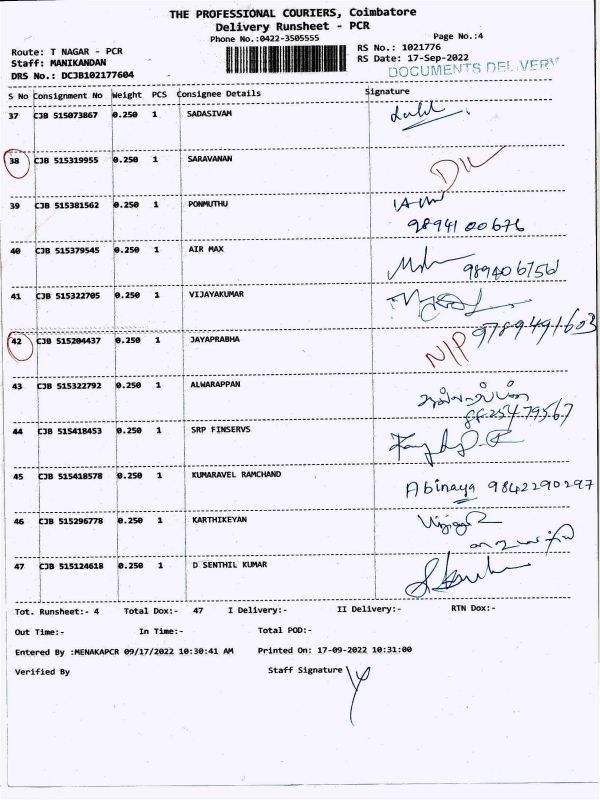 THE PROFESSIONAL COURIERS, Coimbatore
Delivery Runsheet - PCR
Phone No.:0422-3505555 Page No.:4
Route: T NAGAR - PCR RS No.: 1021776
Staff: MANIKANDAN RS Date: 17-Sep-2022
DRS No.: DCJB102177604 DOCUMENTS DELIVERY
S No Consignment No Weight PCS Consignee Details Signature
37 CJB 515073867 0.250 1 SADASIVAM
38 CJB 515319955 0.250 1 SARAVANAN
39 CJB 515381562 0.250 1 PONMUTHU
9894100676
40 CJB 515379545 0.250 1 AIR MAX
41 CJB 515322705 0.250 1 VIJAYAKUMAR
9789491603
42 CJB 515204437 0.250 1 JAYAPRABHA
43 CJB 515322792 0.250 1 ALWARAPPAN
8825479567
44 CJB 515418453 0.250 1 SRP FINSERVS
45 CJB 515418578 0.250 1 KUMARAVEL RAMCHAND
Abinaya 9842290297
46 CJB 515296778 0.250 1 KARTHIKEYAN
47 CJB 515124618 0.250 1 D SENTHIL KUMAR
Tot. Runsheet:- 4 Total Dox:- 47 I Delivery:- II Delivery:- RTN Dox:-
Out Time:- In Time:- Total POD:-
Entered By :MENAKAPCR 09/17/2022 10:30:41 AM Printed On: 17-09-2022 10:31:00
Verified By Staff Signature